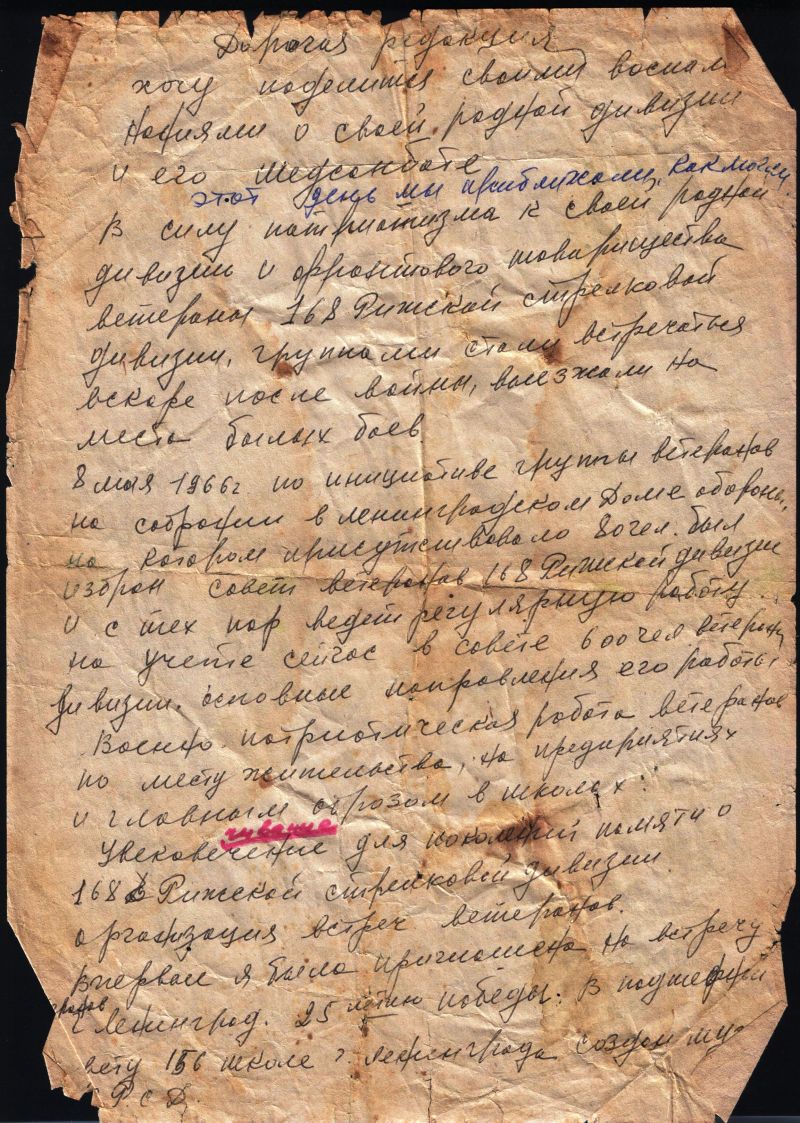 Дорогая редакция
хочу поделится своими воспом
наниями о своей родной дивизии
и его медсанбате
этот день мы приближали, как могли.
В силу патриотизма к своей родной
дивизии и фронтового товарищества
ветераны 168 Рижской стрелковой
дивизии, группами стали встречаться
вскоре после войны, выезжали на
места былых боев
8 мая 1966г. по инициативе группы ветеранов
на собрании в Ленинградском Доме обороны,
на котором присутствовало 80 чел. был
избран совет ветеранов 168 Рижской дивизии
и с тех пор ведет регулярную работу.
на учете сейчас в совете 600 чел ветераны
дивизии. основные направления его работы
Военно. патриотическая работа ветеранов
по месту жительства, на предприятиях
и главным образом в школах.
чивание
Увековечение для поколений памяти о
168 Рижской стрелковой дивизии.
организация встреч ветеранов.
Впервые я была приглашена на встречу
г Ленинград. 25 летию победы. В
156 школе г. Ленинграда создан му
Р.с Д.